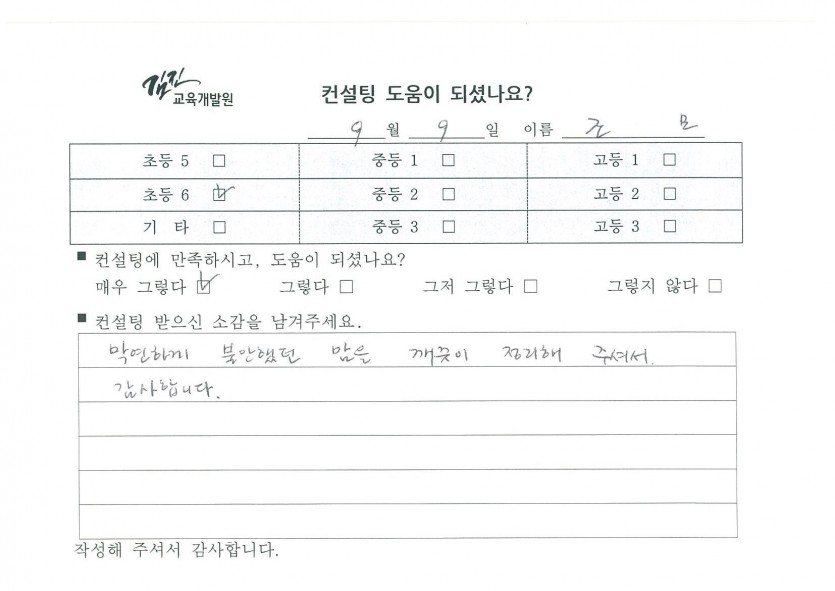 김진
교육개발원
컨설팅 도움이 되셨나요?
9 월 9 일 이름 조 모
초등 5 □ 중등 1 □ 고등 1 □
초등 6 ☑ 중등 2 □ 고등 2 □
기 타 □ 중등 3 □ 고등 3 □
■ 컨설팅에 만족하시고, 도움이 되셨나요?
매우 그렇다 ☑ 그렇다 □ 그저 그렇다 □ 그렇지 않다 □
■ 컨설팅 받으신 소감을 남겨주세요.
막연하게 불안했던 맘을 깨끗이 정리해 주셔서
감사합니다.
작성해 주셔서 감사합니다.